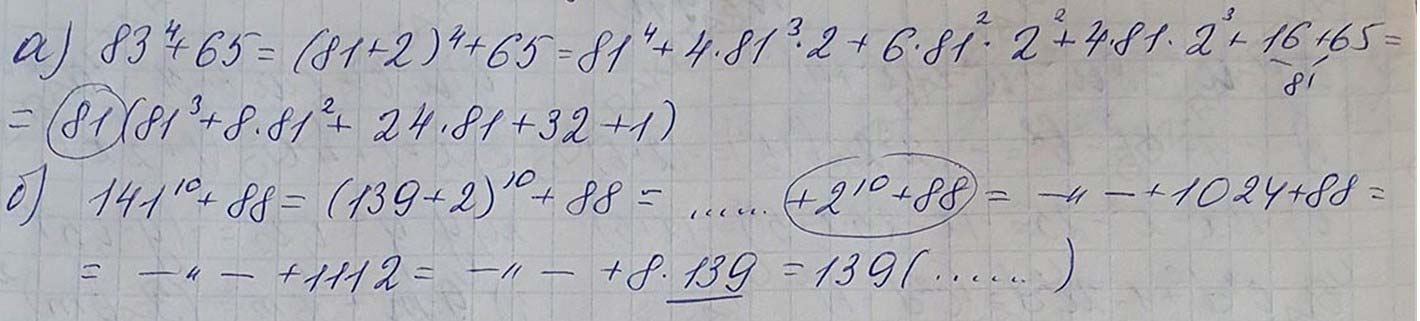 а) 83⁴+65=(81+2)⁴+65=81⁴+4·81³·2+6·81²·2²+4·81·2³+16+65=
81
=81(81³+8·81²+24·81+32+1)
б) 141¹⁰+88=(139+2)¹⁰+88= ...... +2¹⁰+88 = —〃—+1024+88=
= —〃— +1112= —〃— +8·139=139(......)